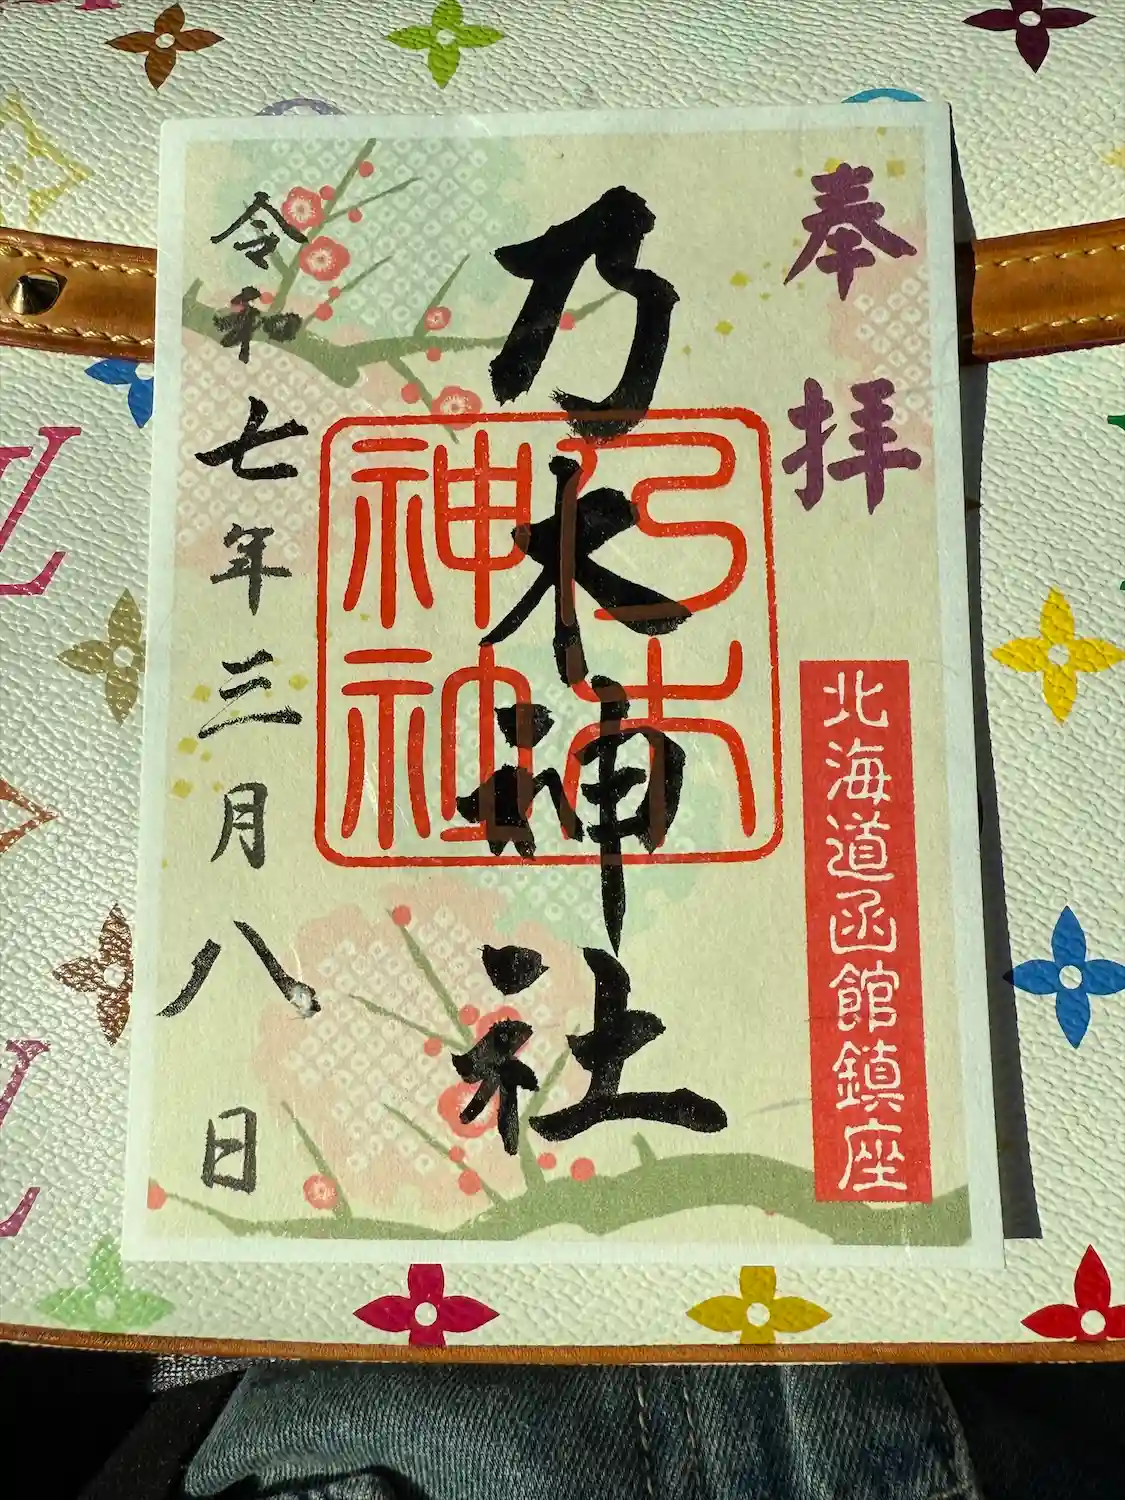 奉拝
北海道函館鎮座
乃木神社
乃木神社
令和七年三月八日